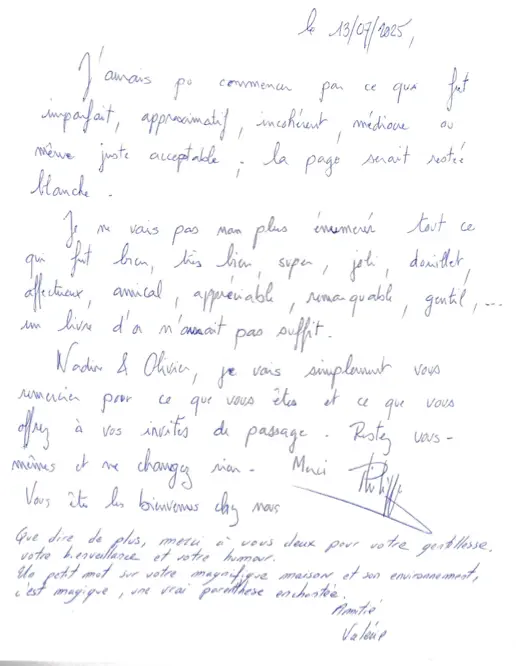 le 13/07/2025,
J'aurais pu commencer par ce qui fut
imparfait, approximatif, incohérent, médiocre ou
même juste acceptable ; la page serait restée
blanche.
Je ne vais pas non plus énumérer tout ce
qui fut bien, très bien, super, joli, douillet,
affectueux, amical, appréciable, remarquable, gentil, ...
un livre d'or n'aurait pas suffit.
Nadine & Olivier, je vais simplement vous
remercier pour ce que vous êtes et ce que vous
offrez à vos invités de passage. Restez vous-
mêmes et ne changez rien. Merci Philippe
Vous êtes les bienvenus chez nous
Que dire de plus, merci à vous deux pour votre gentillesse,
votre bienveillance et votre humour.
Un petit mot sur votre magnifique maison et son environnement,
c'est magique, une vrai parenthèse enchantée.
Amitié
Valérie